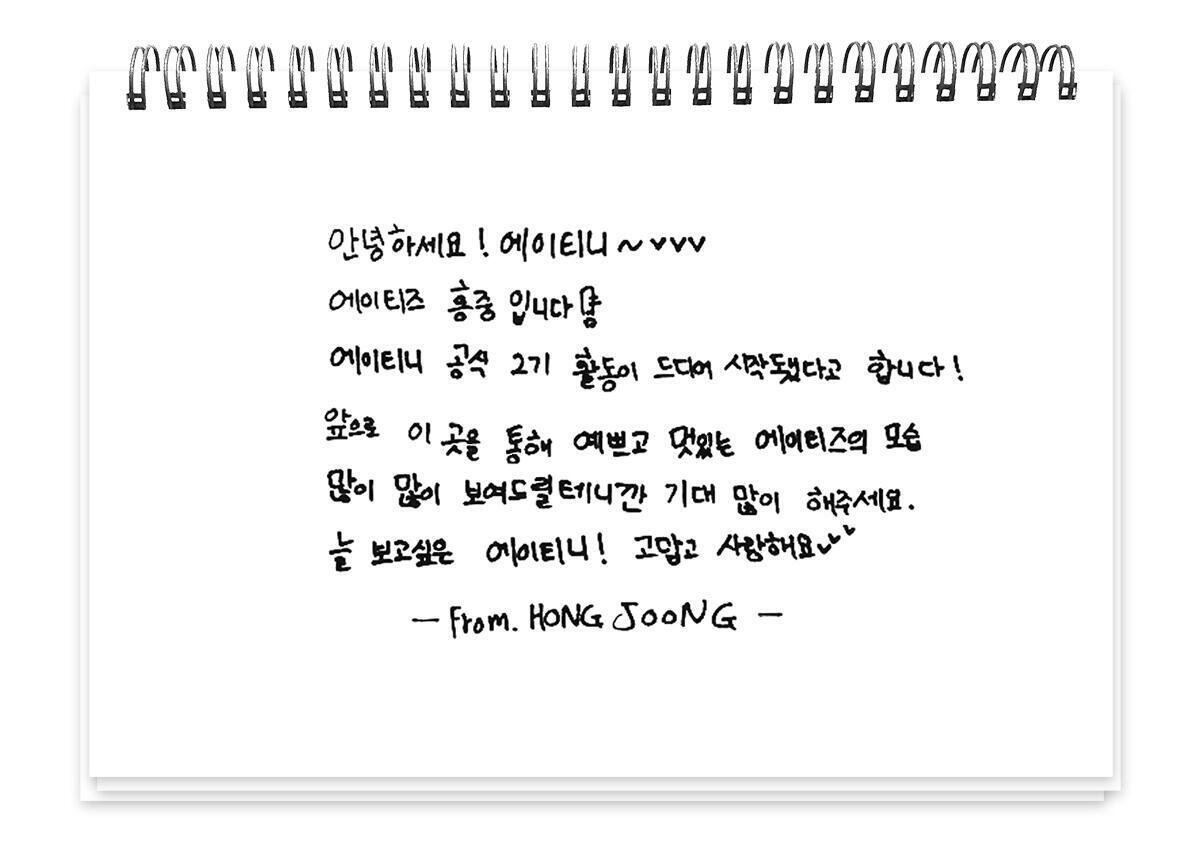 안녕하세요! 에이티니~ ♥♥♥
에이티즈 홍중 입니다
에이티니 공식 2기 활동이 드디어 시작됐다고 합니다!
앞으로 이 곳을 통해 예쁘고 멋있는 에이티즈의 모습
많이 많이 보여드릴테니깐 기대 많이 해주세요.
늘 보고싶은 에이티니! 고맙고 사랑해요♥♥♥
- From. HONG JOONG -